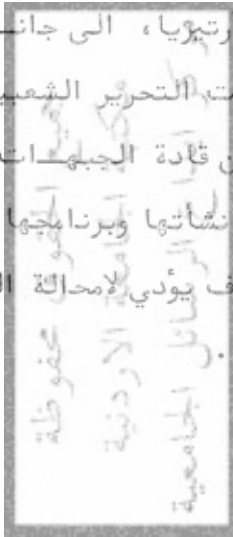 رتيريا، الى جانـ
ت التحرير الشعبيـ
ن قادة الجبهـــات
نشأتها وبرنامجها
ف يؤدي لامحالة ا
جميع الحقوق محفوظة
مكتبة الجامعة الاردنية
مركز ايداع الرسائل الجامعية